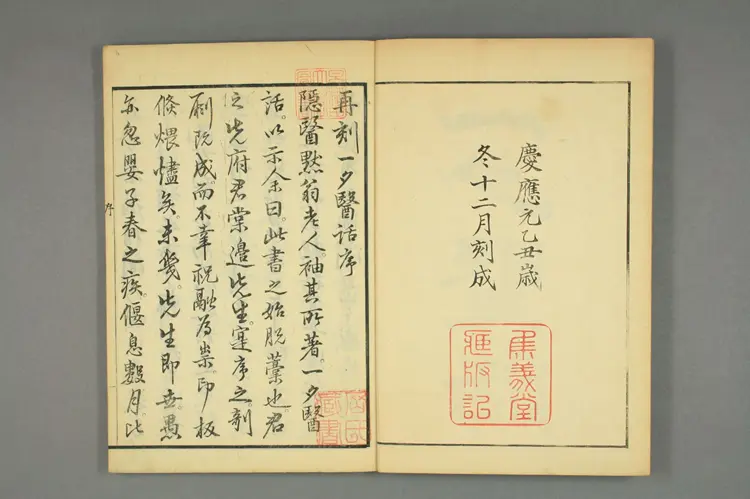 慶應元乙丑歳
冬十二月刻成
集義堂
蔵版記
再刻一夕醫話序
隠醫黙翁老人。袖其所著。一夕醫
話。以示余曰。此書之始脱藁也。君
之先府君棠邉先生。寔序之。剞
劂既成。而不幸祝融為祟。印板
倏煨燼矣。未幾。先生即世。愚
亦忽嬰子春之疾。偃息數月。比
序